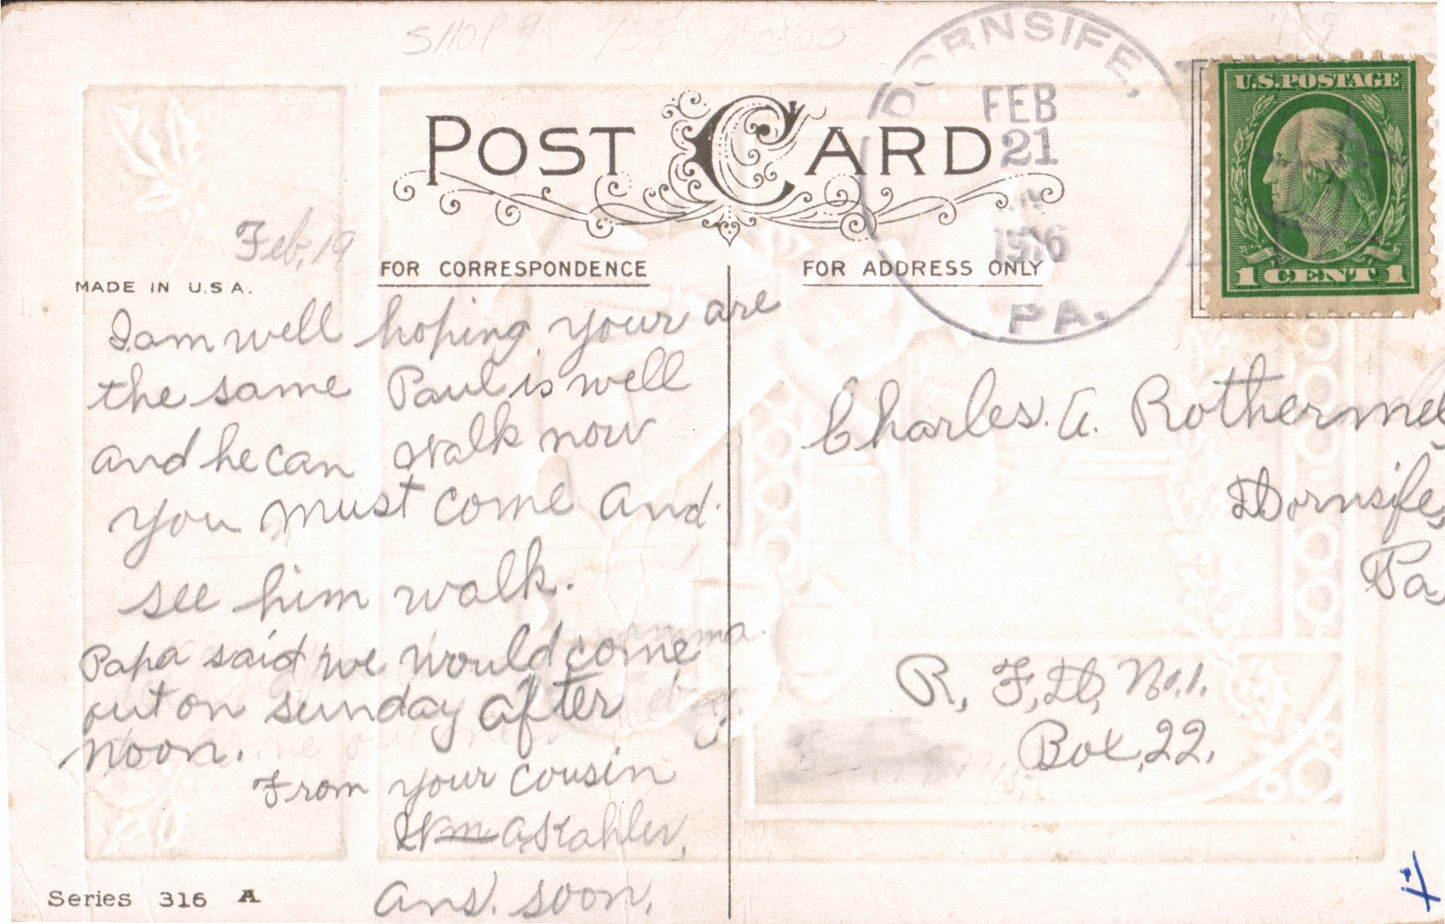 SHOP 9
POST CARD
DORNSIFE,
FEB
21
1916
PA.
U.S.POSTAGE
1 CENT 1
Feb, 19
MADE IN U.S.A.
FOR CORRESPONDENCE
FOR ADDRESS ONLY
I am well hoping your are
the same Paul is well
and he can walk now
you must come and
see him walk.
Papa said we would come
out on sunday after
noon.
From your cousin
Wm A Kahler,
Ans. soon.
Charles. A. Rotherme
Dornsife,
Pa,
R, F, D, No. 1.
Box, 22.
Series 316 A